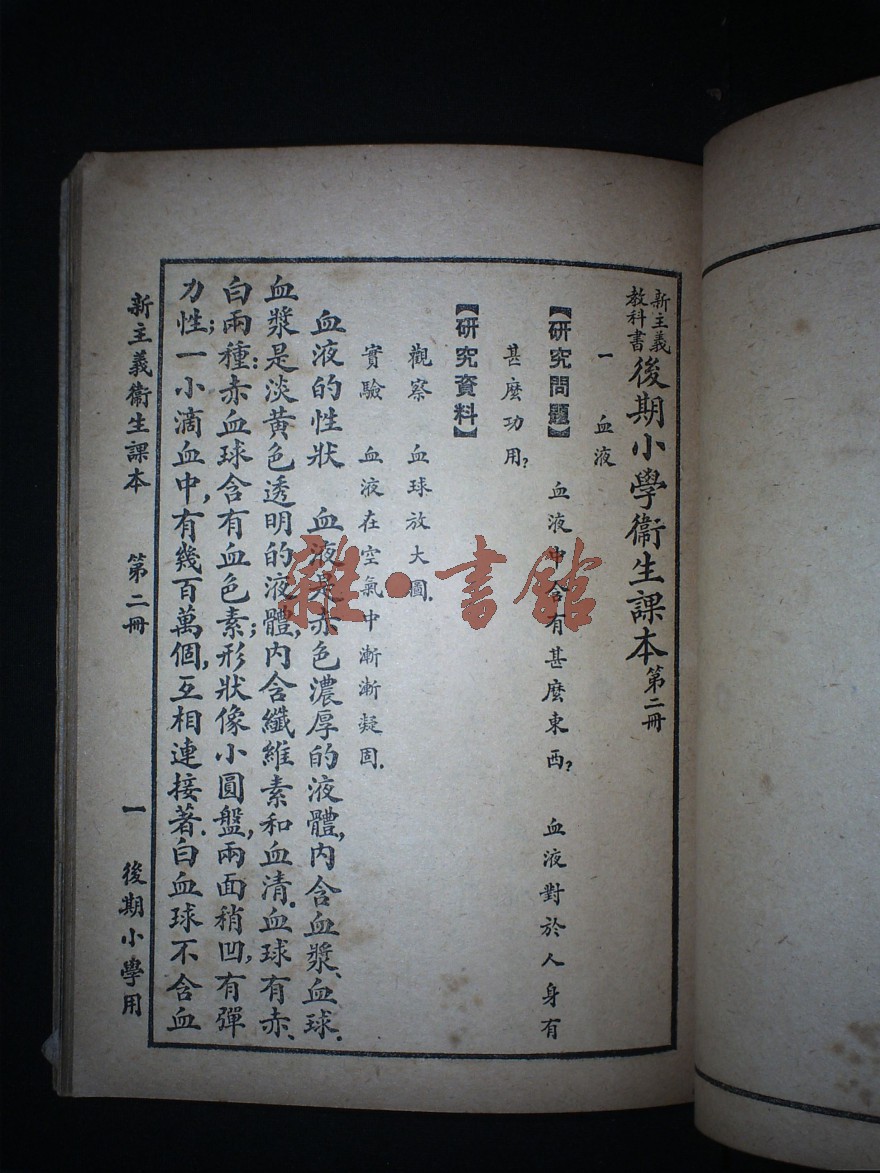 新主義
教科書
後期小學衞生課本第二冊
一 血液
【研究問題】 血液中含有甚麼東西？ 血液對於人身有
甚麼功用？
【研究資料】
觀察 血球放大圖.
實驗 血液在空氣中漸漸凝固.
血液的性狀 血液是赤色濃厚的液體,內含血漿、血球.
血漿是淡黃色透明的液體,內含纖維素和血清.血球有赤、
白兩種:赤血球含有血色素;形狀像小圓盤,兩面稍凹,有彈
力性;一小滴血中,有幾百萬個,互相連接著.白血球不含血
新主義衞生課本 第二冊 一 後期小學用
雜·書館